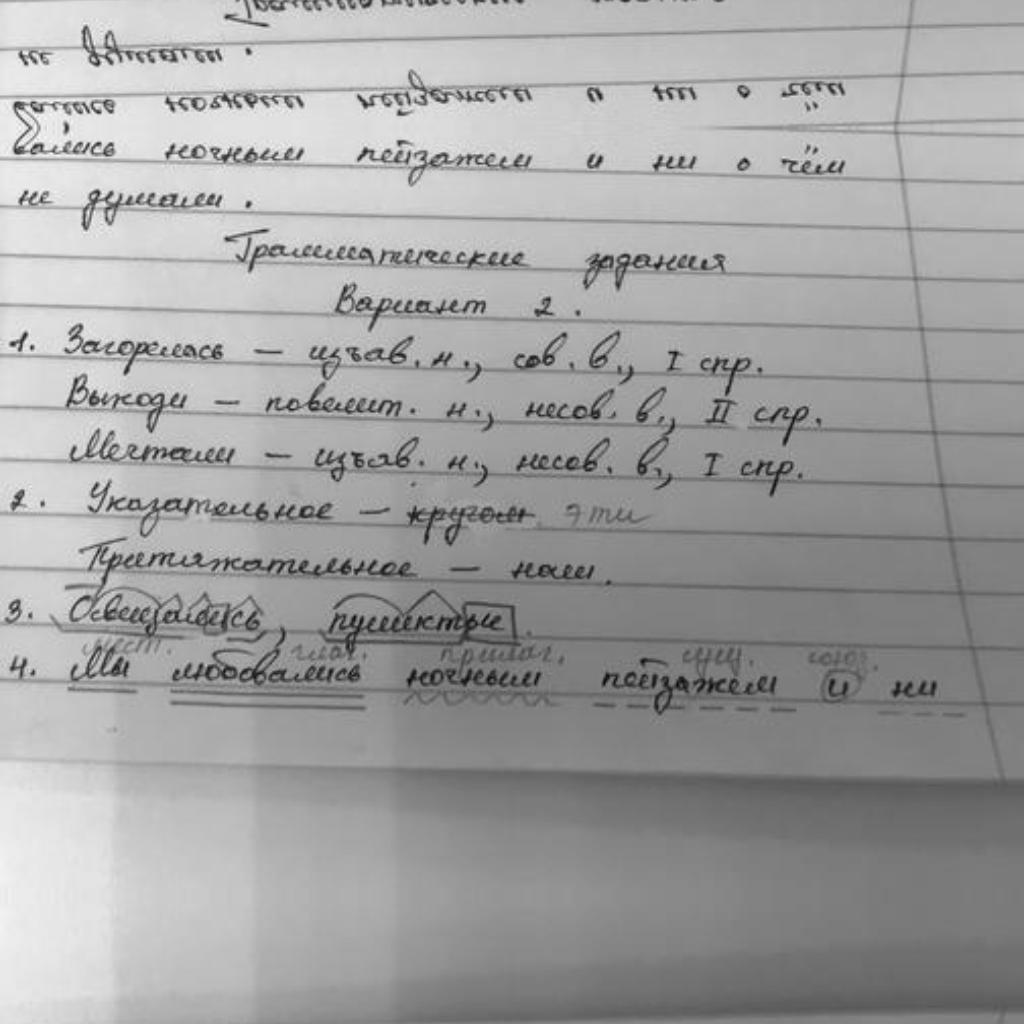 не думали.
вались ночным пейзажем и ни о чём
вались ночным пейзажем и ни о чём
не думали.
Грамматические задания
Вариант 2.
1. Загорелась — изъяв. н., сов. в., I спр.
Выходи — повелит. н., несов. в., II спр.
Мечтали — изъяв. н., несов. в., I спр.
2. Указательное — кругом эти
Притяжательное — наш.
3. Освещались, пушистые.
мест. глаг. прилаг. сущ. союз.
4. Мы любовались ночным пейзажем и ни